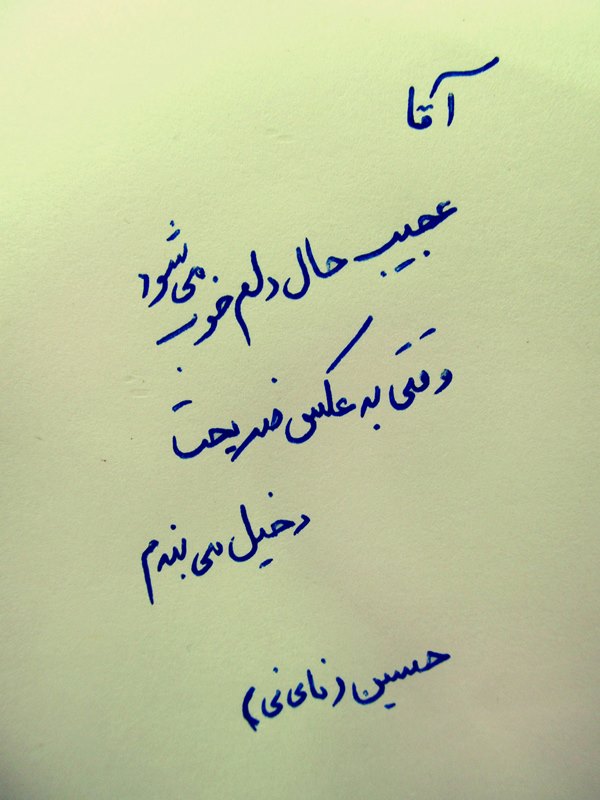 آقا
عجیب حال دلم خوب می‌شود
وقتی به عکس ضریحت
دخیل می بندم
حسین (نای نی)